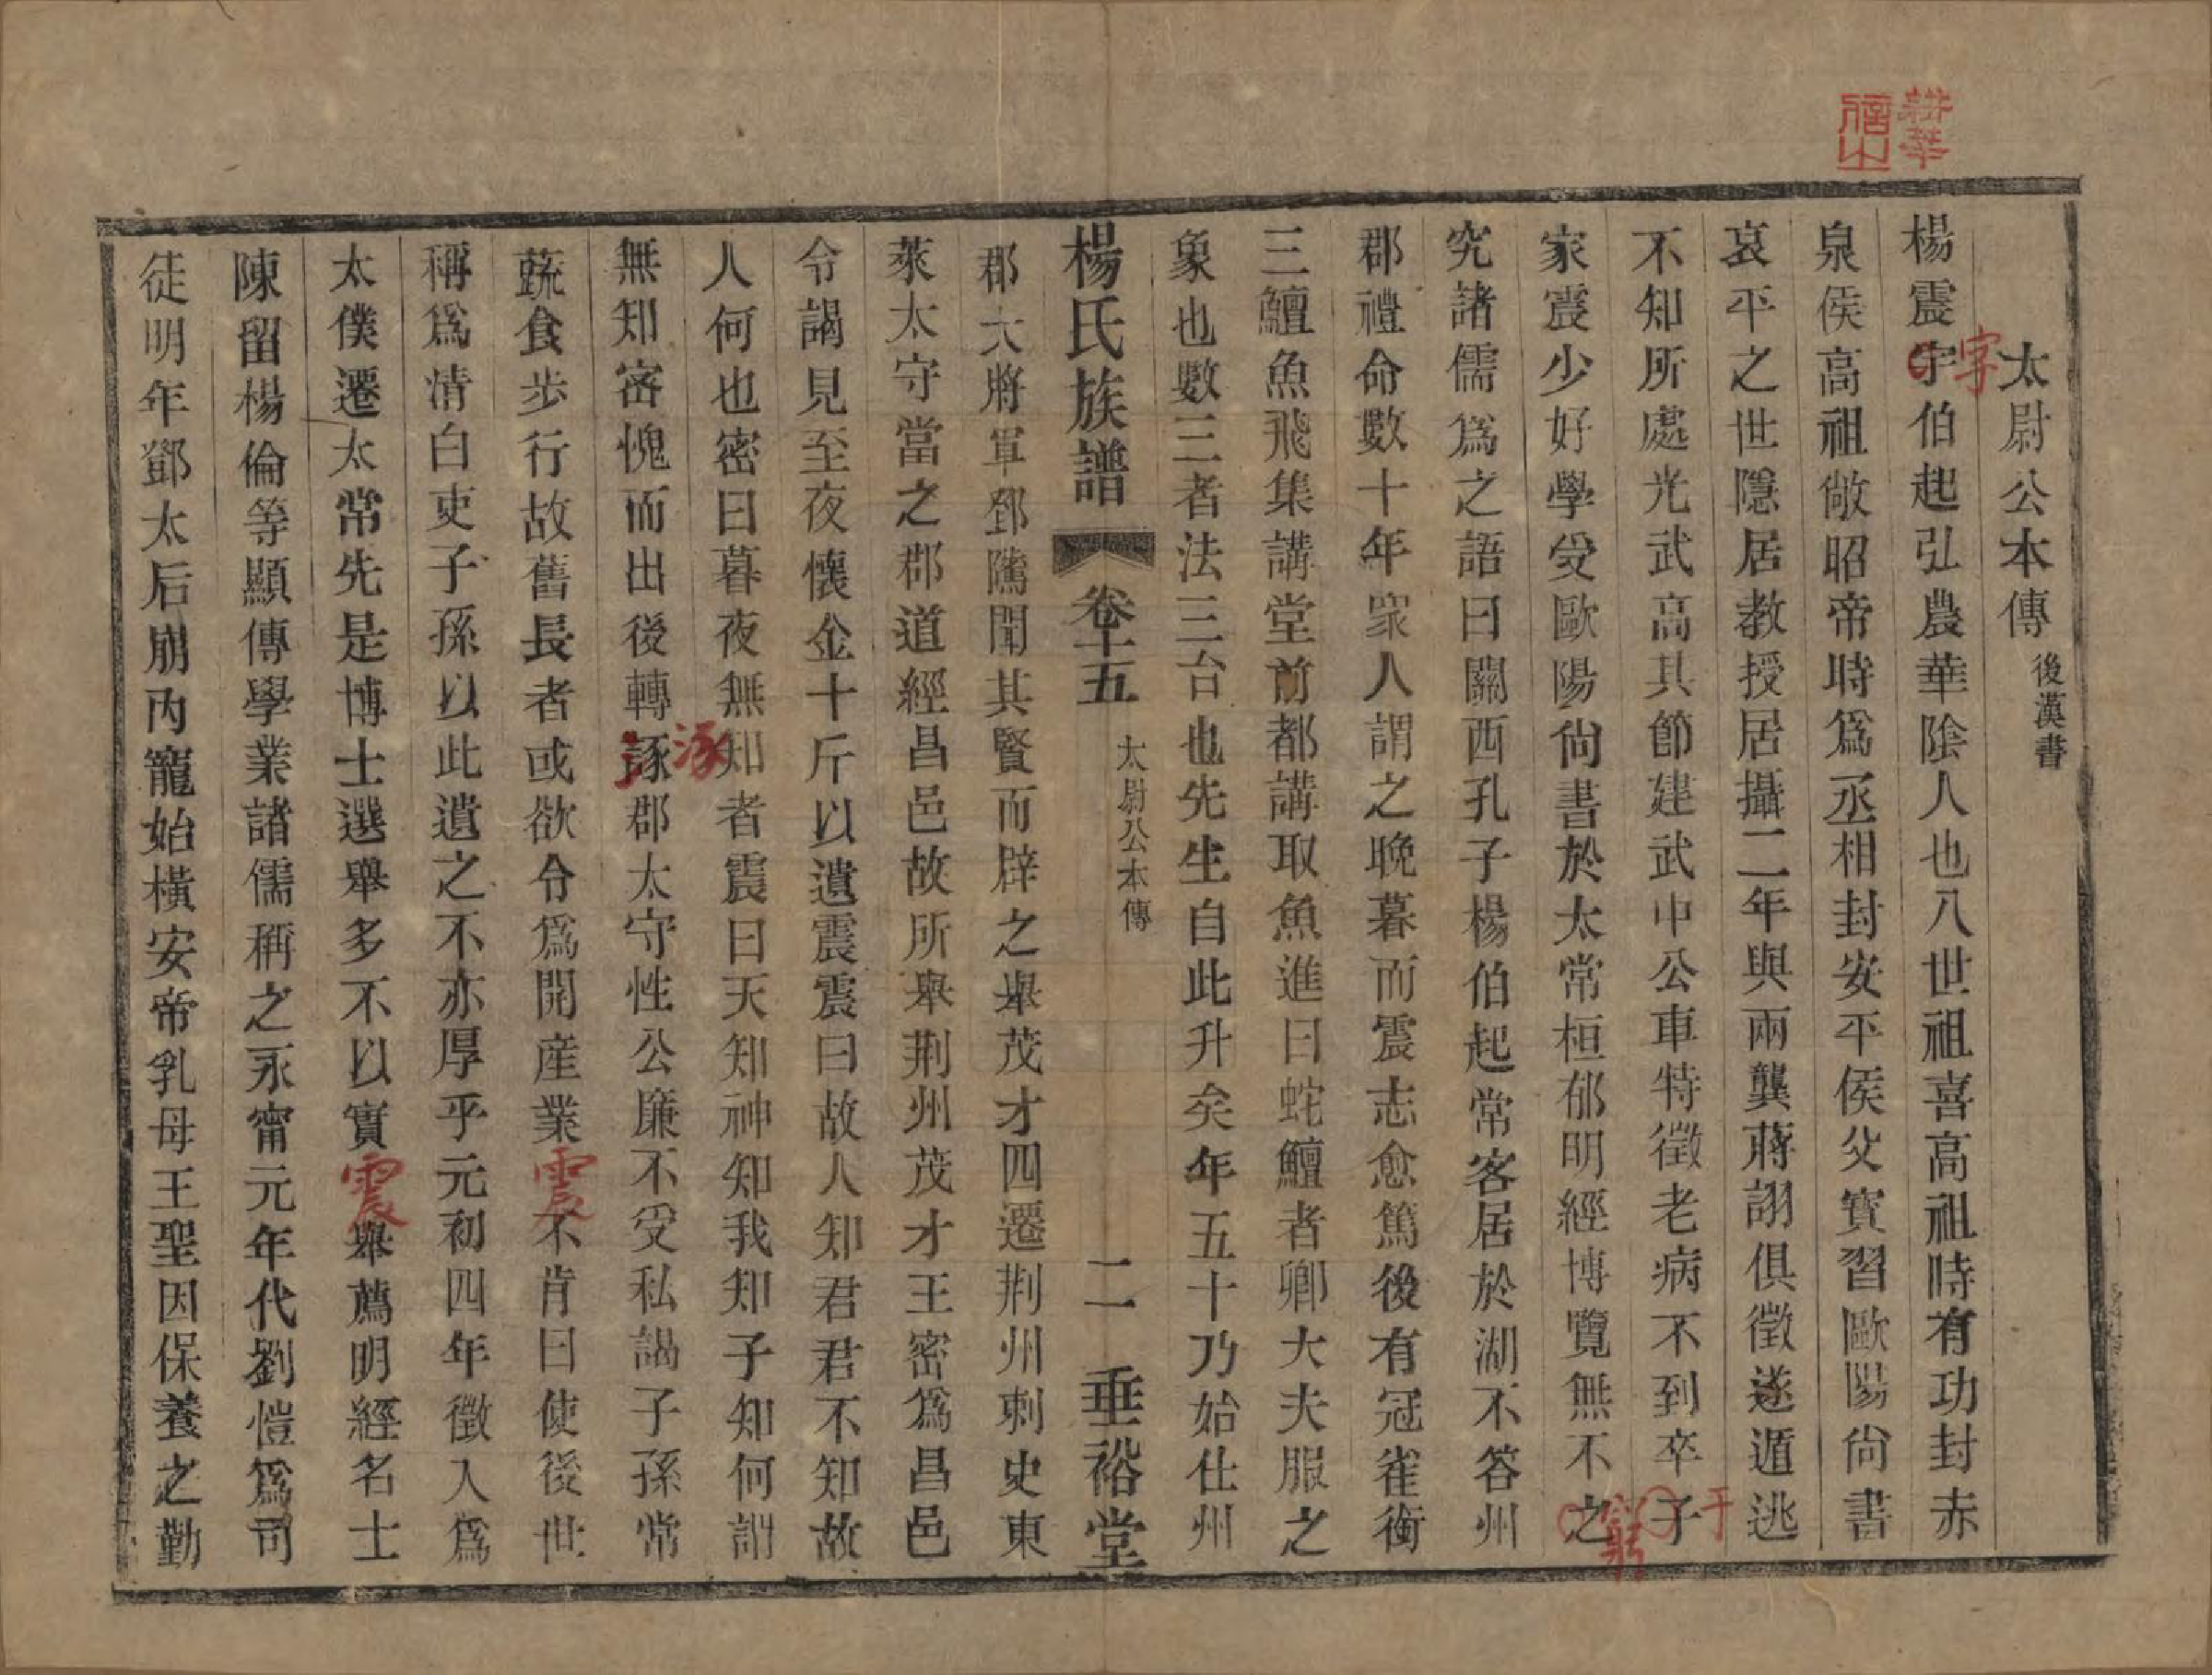 太尉公本傳 後漢書
楊震字伯起弘農華陰人也八世祖喜高祖時有功封赤
字
泉侯高祖敞昭帝時爲丞相封安平侯父寶習歐陽尙書
哀平之世隱居教授居攝二年與兩龔蔣詡俱徵遂遁逃
不知所處光武高其節建武中公車特徵老病不到卒子
于
家震少好學受歐陽尙書於太常桓郁明經博覽無不之
窮
究諸儒爲之語曰關西孔子楊伯起常客居於湖不答州
郡禮命數十年衆人謂之晚暮而震志愈篤後有冠雀銜
三鱣魚飛集講堂前都講取魚進曰蛇鱣者卿大夫服之
象也數三者法三台也先生自此升矣年五十乃始仕州
楊氏族譜 卷十五 太尉公本傳 二 垂裕堂
郡大將軍鄧隲聞其賢而辟之舉茂才四遷荆州刺史東
萊太守當之郡道經昌邑故所舉荆州茂才王密爲昌邑
令謁見至夜懷金十斤以遺震震曰故人知君君不知故
人何也密曰暮夜無知者震曰天知神知我知子知何謂
無知密愧而出後轉諑郡太守性公廉不受私謁子孫常
涿
蔬食步行故舊長者或欲令爲開産業震不肯曰使後世
稱爲清白吏子孫以此遺之不亦厚乎元初四年徵入爲
太僕遷太常先是博士選舉多不以實震舉薦明經名士
陳留楊倫等顯傳學業諸儒稱之永甯元年代劉愷爲司
徒明年鄧太后崩內寵始橫安帝乳母王聖因保養之勤